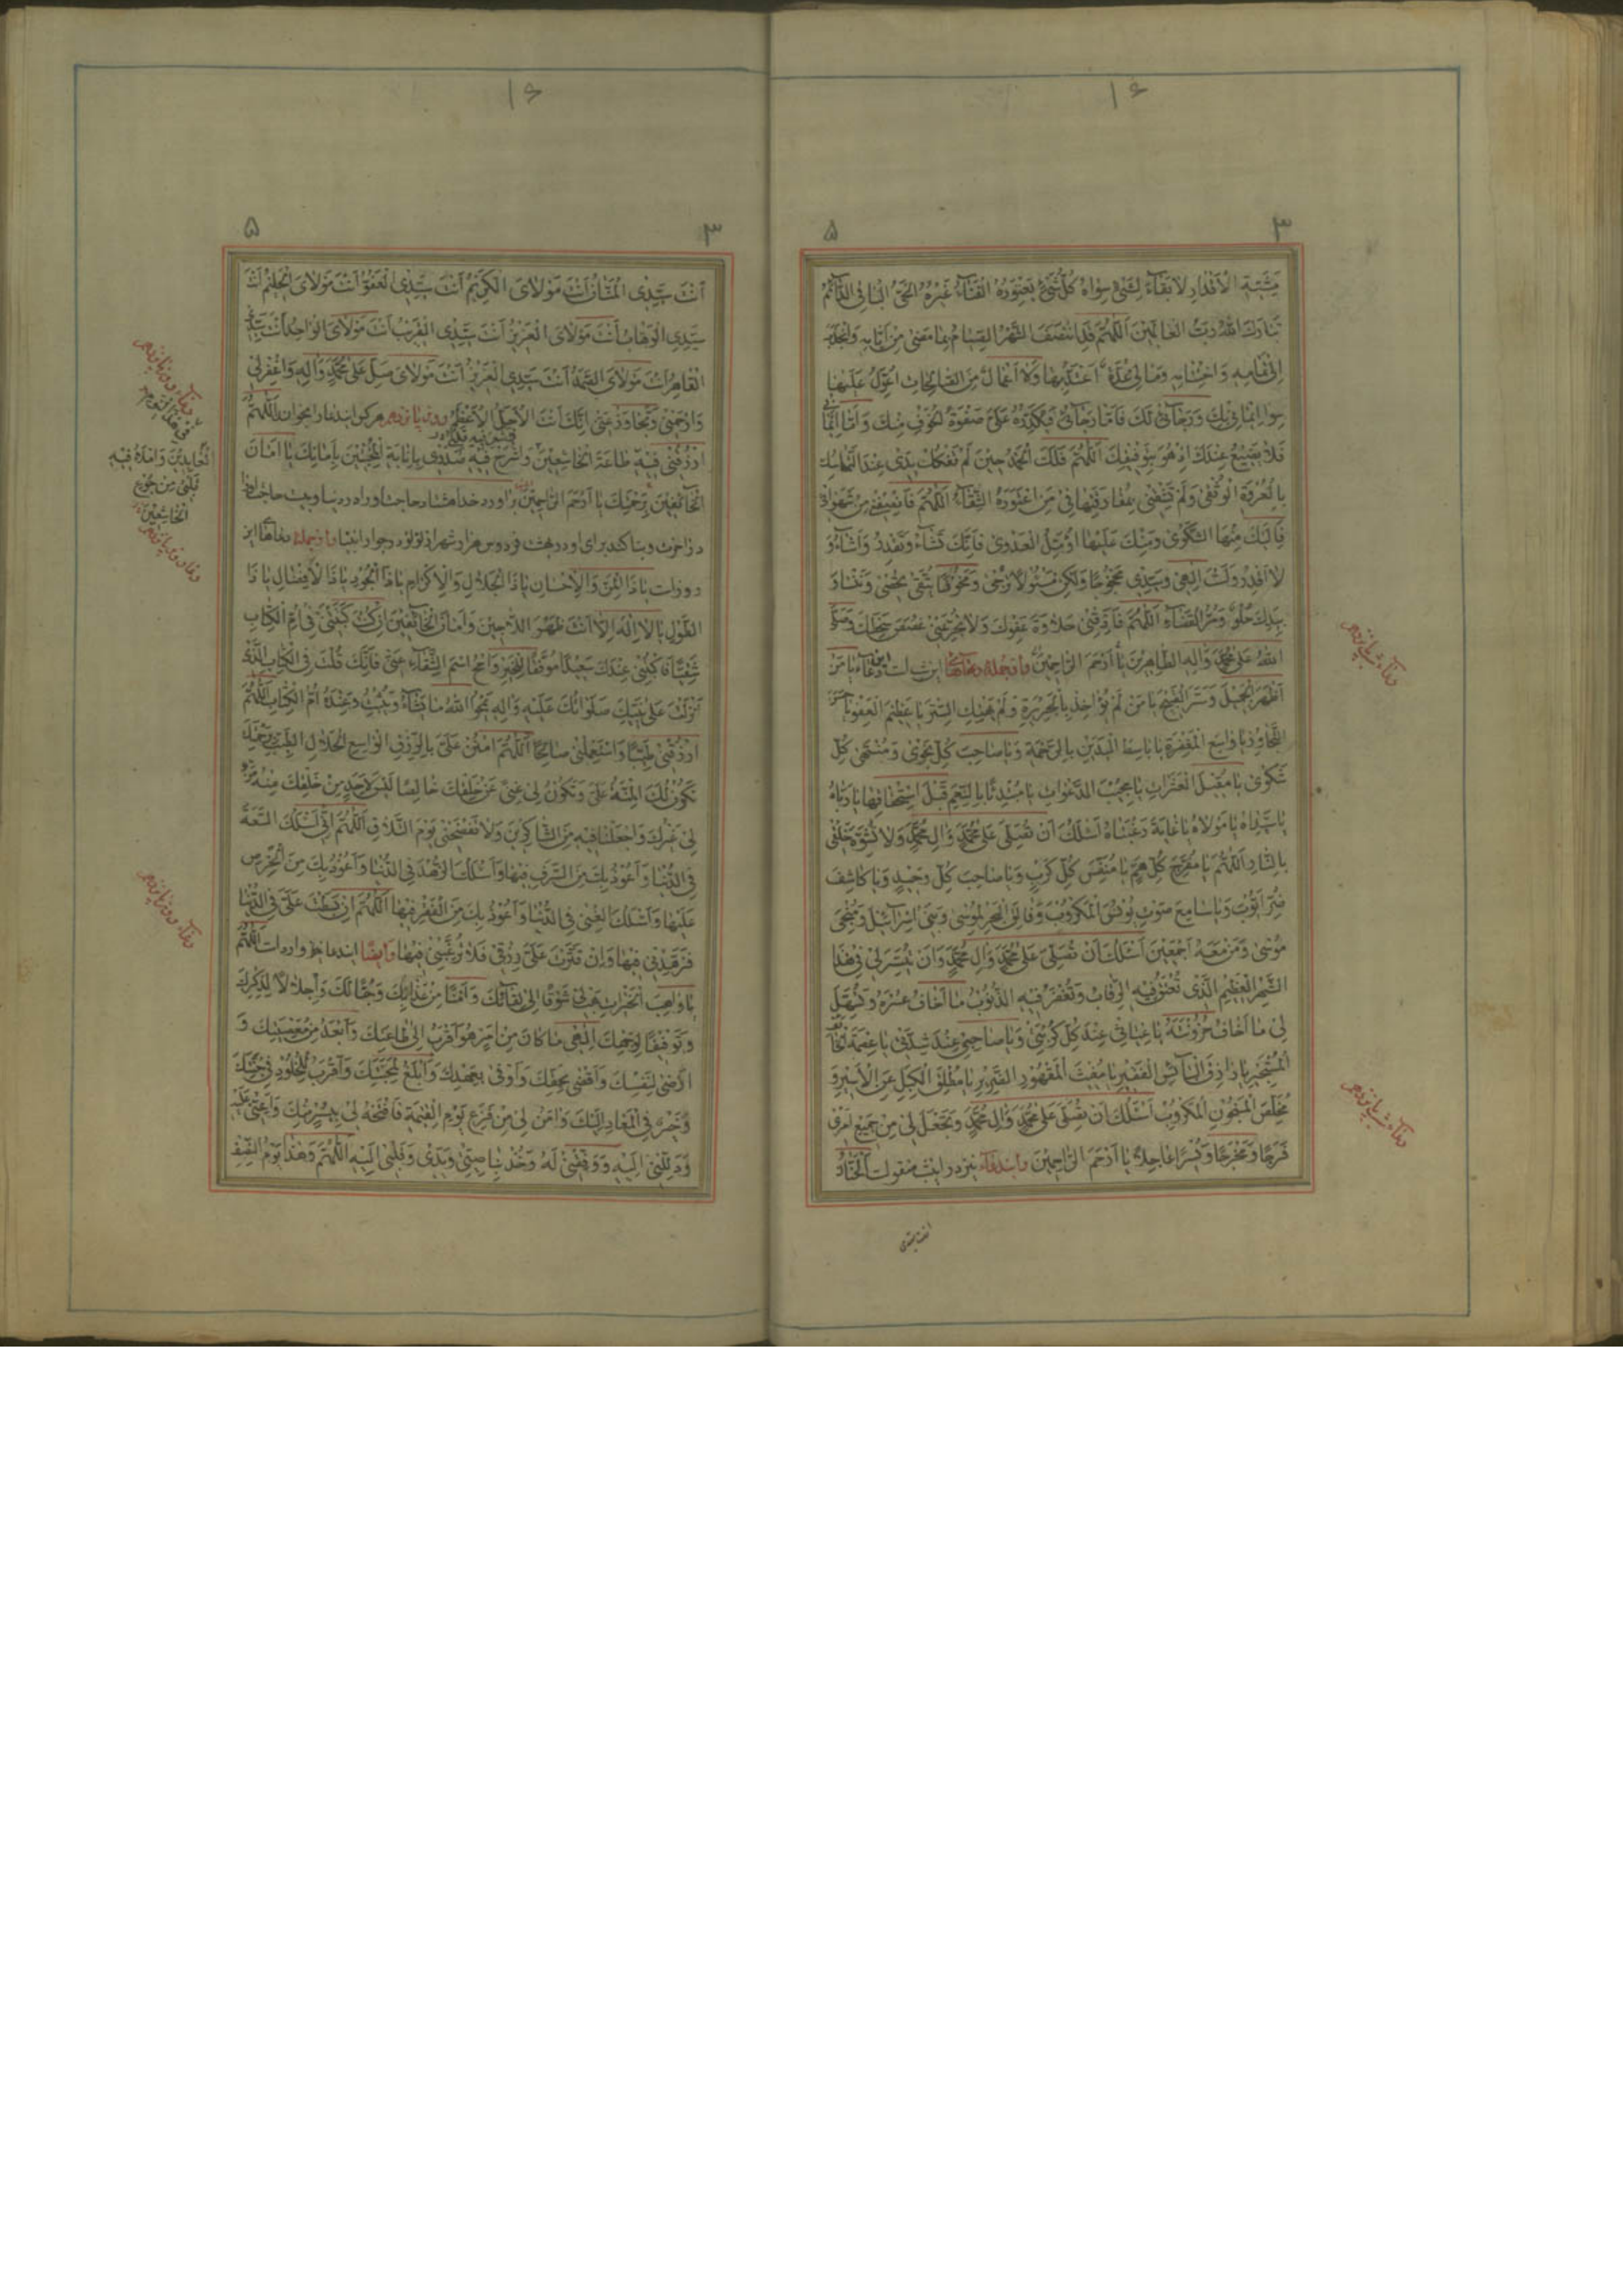 ۱۶
۳
۵
مشیة الأقدار لا بقاء لشیء سواه کل شیء یعتوره الفناء غیره الحی الباقی الدائم
تبارک الله رب العالمین اللهم قد انتصف الشهر الصیام بما مضی من ایامه وانجذبه
الی تمامه واختتامه ومالی عدة اعتد بها ولا اعمال من الصالحات اعول علیها
سوا ایمانی بک ورجائی لک فاما رجائی فیکدره علی صفوة الخوف منک واما ایمانی
فلا یضیع عندک اذ هو بتوفیقک اللهم فلک الحمد حین لم تفکک یدی عند التماسک
بالعروة الوثقی ولم تشقنی بمفارقتها فی من اعتوره الشقاء اللهم فانصفنی من شهواتی
فالیک منها الشکوی ومنک علیها اؤمل العدوی فانک تشاء وتقدر واشاء و
لا اقدر ولست الهی وسیدی محجوجا ولکن مسئولا ترجی ومخوفا تتقی تحصی وننسی و
بیدک حلو ومر القضاء اللهم فاذقنی حلاوة عفوک ولا تجرعنی غصص سخطک وصلی
الله علی محمد واله الطاهرین یا أرحم الراحمین و از جمله دعاها این شب است این دعاء یا من
أظهر الجمیل وستر القبیح یا من لم یؤاخذ بالجریرة ولم یهتک الستر یا عظیم العفو یا حسن
التجاوز یا واسع المغفرة یا باسط الیدین بالرحمة ویا صاحب کل نجوی ومنتهی کل
شکوی یا مقیل العثرات یا مجیب الدعوات یا مبتدئا بالنعیم قبل استحقاقها یا رباه
یا سیداه یا مولاه یا غایة رغبتاه أسئلک ان تصلی علی محمد وال محمد ولا تشوه خلقی
بالنار اللهم یا مفرج کل هم یا منفس کل کرب ویا صاحب کل وحید ویا کاشف
ضر ایوب ویا سامع صوت یونس المکروب وفالق البحر لموسی وبنی اسرائیل ومنجی
موسی ومن معه اجمعین أسئلک ان تصلی علی محمد وال محمد وان تیسر لی فی هذا
الشهر العظیم الذی تعتق فیه الرقاب وتغفر فیه الذنوب ما اخاف عسره وتسهل
لی ما اخاف حزونته یا غیاثی عند کل کربتی ویا صاحبی عند شدتی یا عصمة الخائف
المستجیر یا رازق البائس الفقیر یا مغیث المقهور الضریر یا مطلق المکبل عن الاسیر و
مخلص المسجون المکروب أسئلک ان تصلی علی محمد وال محمد وتجعل لی من جمیع اموری
فرجا ومخرجا ویسرا عاجلا یا أرحم الراحمین و ایندعاء نیز در این شب منقول است
دعاء شب پانزدهم
دعاء شب پانزدهم
۱۶
۳
۵
أنت سیدی المنان أنت مولای الکریم أنت سیدی العفو أنت مولای الحلیم أنت
سیدی الوهاب أنت مولای العزیز أنت سیدی القریب أنت مولای الواحد أنت سیدی
القاهر أنت مولای الصمد أنت سیدی العزیز أنت مولای صل علی محمد واله واغفر لی
وارحمنی وتجاوز عنی انک أنت الأجل الأعظم روز پانزدهم هر که ایندعا را بخواند اللهم
ارزقنی فیه طاعة الخاشعین واشرح فیه صدری بانابة المخبتین بامانک یا امان
الخائفین برحمتک یا أرحم الراحمین براورد خدا هشتاد حاجت او را در دنیا و بیست حاجت او را
در اخرت و بنا کند برای او در بهشت فردوس هزار شهر از لؤلؤ در جوار انبیا و از جمله دعاهای این
روز است یا ذا المن والإحسان یا ذا الجلال والإکرام یا ذا الجود یا ذا الإفضال یا ذا
الطول یا لا اله الا أنت ظهر اللاجین وامان الخائفین ان کنت کتبتنی فی ام الکتاب
شقیا فاکتبنی عندک سعیدا موفقا للخیر وامح اسم الشقاء عنی فانک قلت فی الکتاب الذی
نزلت علی نبیک صلواتک علیه واله یمحو الله ما یشاء ویثبت وعنده ام الکتاب اللهم
ارزقنی طیبا واستعملنی صالحا اللهم امنن علی بالرزق الواسع الحلال الطیب برحمتک
تکون لک المنة علی وتکون لی غنی عن خلقک خالصا لیس لاحد من خلقک منه من
لی غیرک واجعلنا فیه من الشاکرین ولا تفضحنی یوم التلاق اللهم انی أسئلک السعة
فی الدنیا وأعوذ بک من السرف فیها وأسئلک الزهد فی الدنیا وأعوذ بک من الحرص
علیها وأسئلک الغنی فی الدنیا وأعوذ بک من الفقر فیها اللهم ان بسطت علی فی الدنیا
فزهدنی فیها وان قترت علی رزقی فلا ترغبنی فیها و ایضا ایندعا وارد است اللهم
یا واهب الخیرات هب لی شوقا الی لقائک وامنا من عذابک وحبا لک واجلالا لذکرک
وتوفیقا لوجهک الهی ما کان من امر هو اقرب الی طاعتک وأبعد من معصیتک و
ارضی لنفسک واقضی بحقک واوفی بعهدک وابلغ لمحبتک واقرب للخلود فی جنتک
وخیر فی المعاد الیک وامن لی من فزع یوم القیمة فافتحه لی بیسر منک واعنی علیه
ودلنی الیه ووفقنی له وخذ بناصیتی ویدی وقلبی الیه اللهم وهذا یوم
دعاء روز پانزدهم
العابدین
قلبی من
الخاشعین
دعاء روز پانزدهم